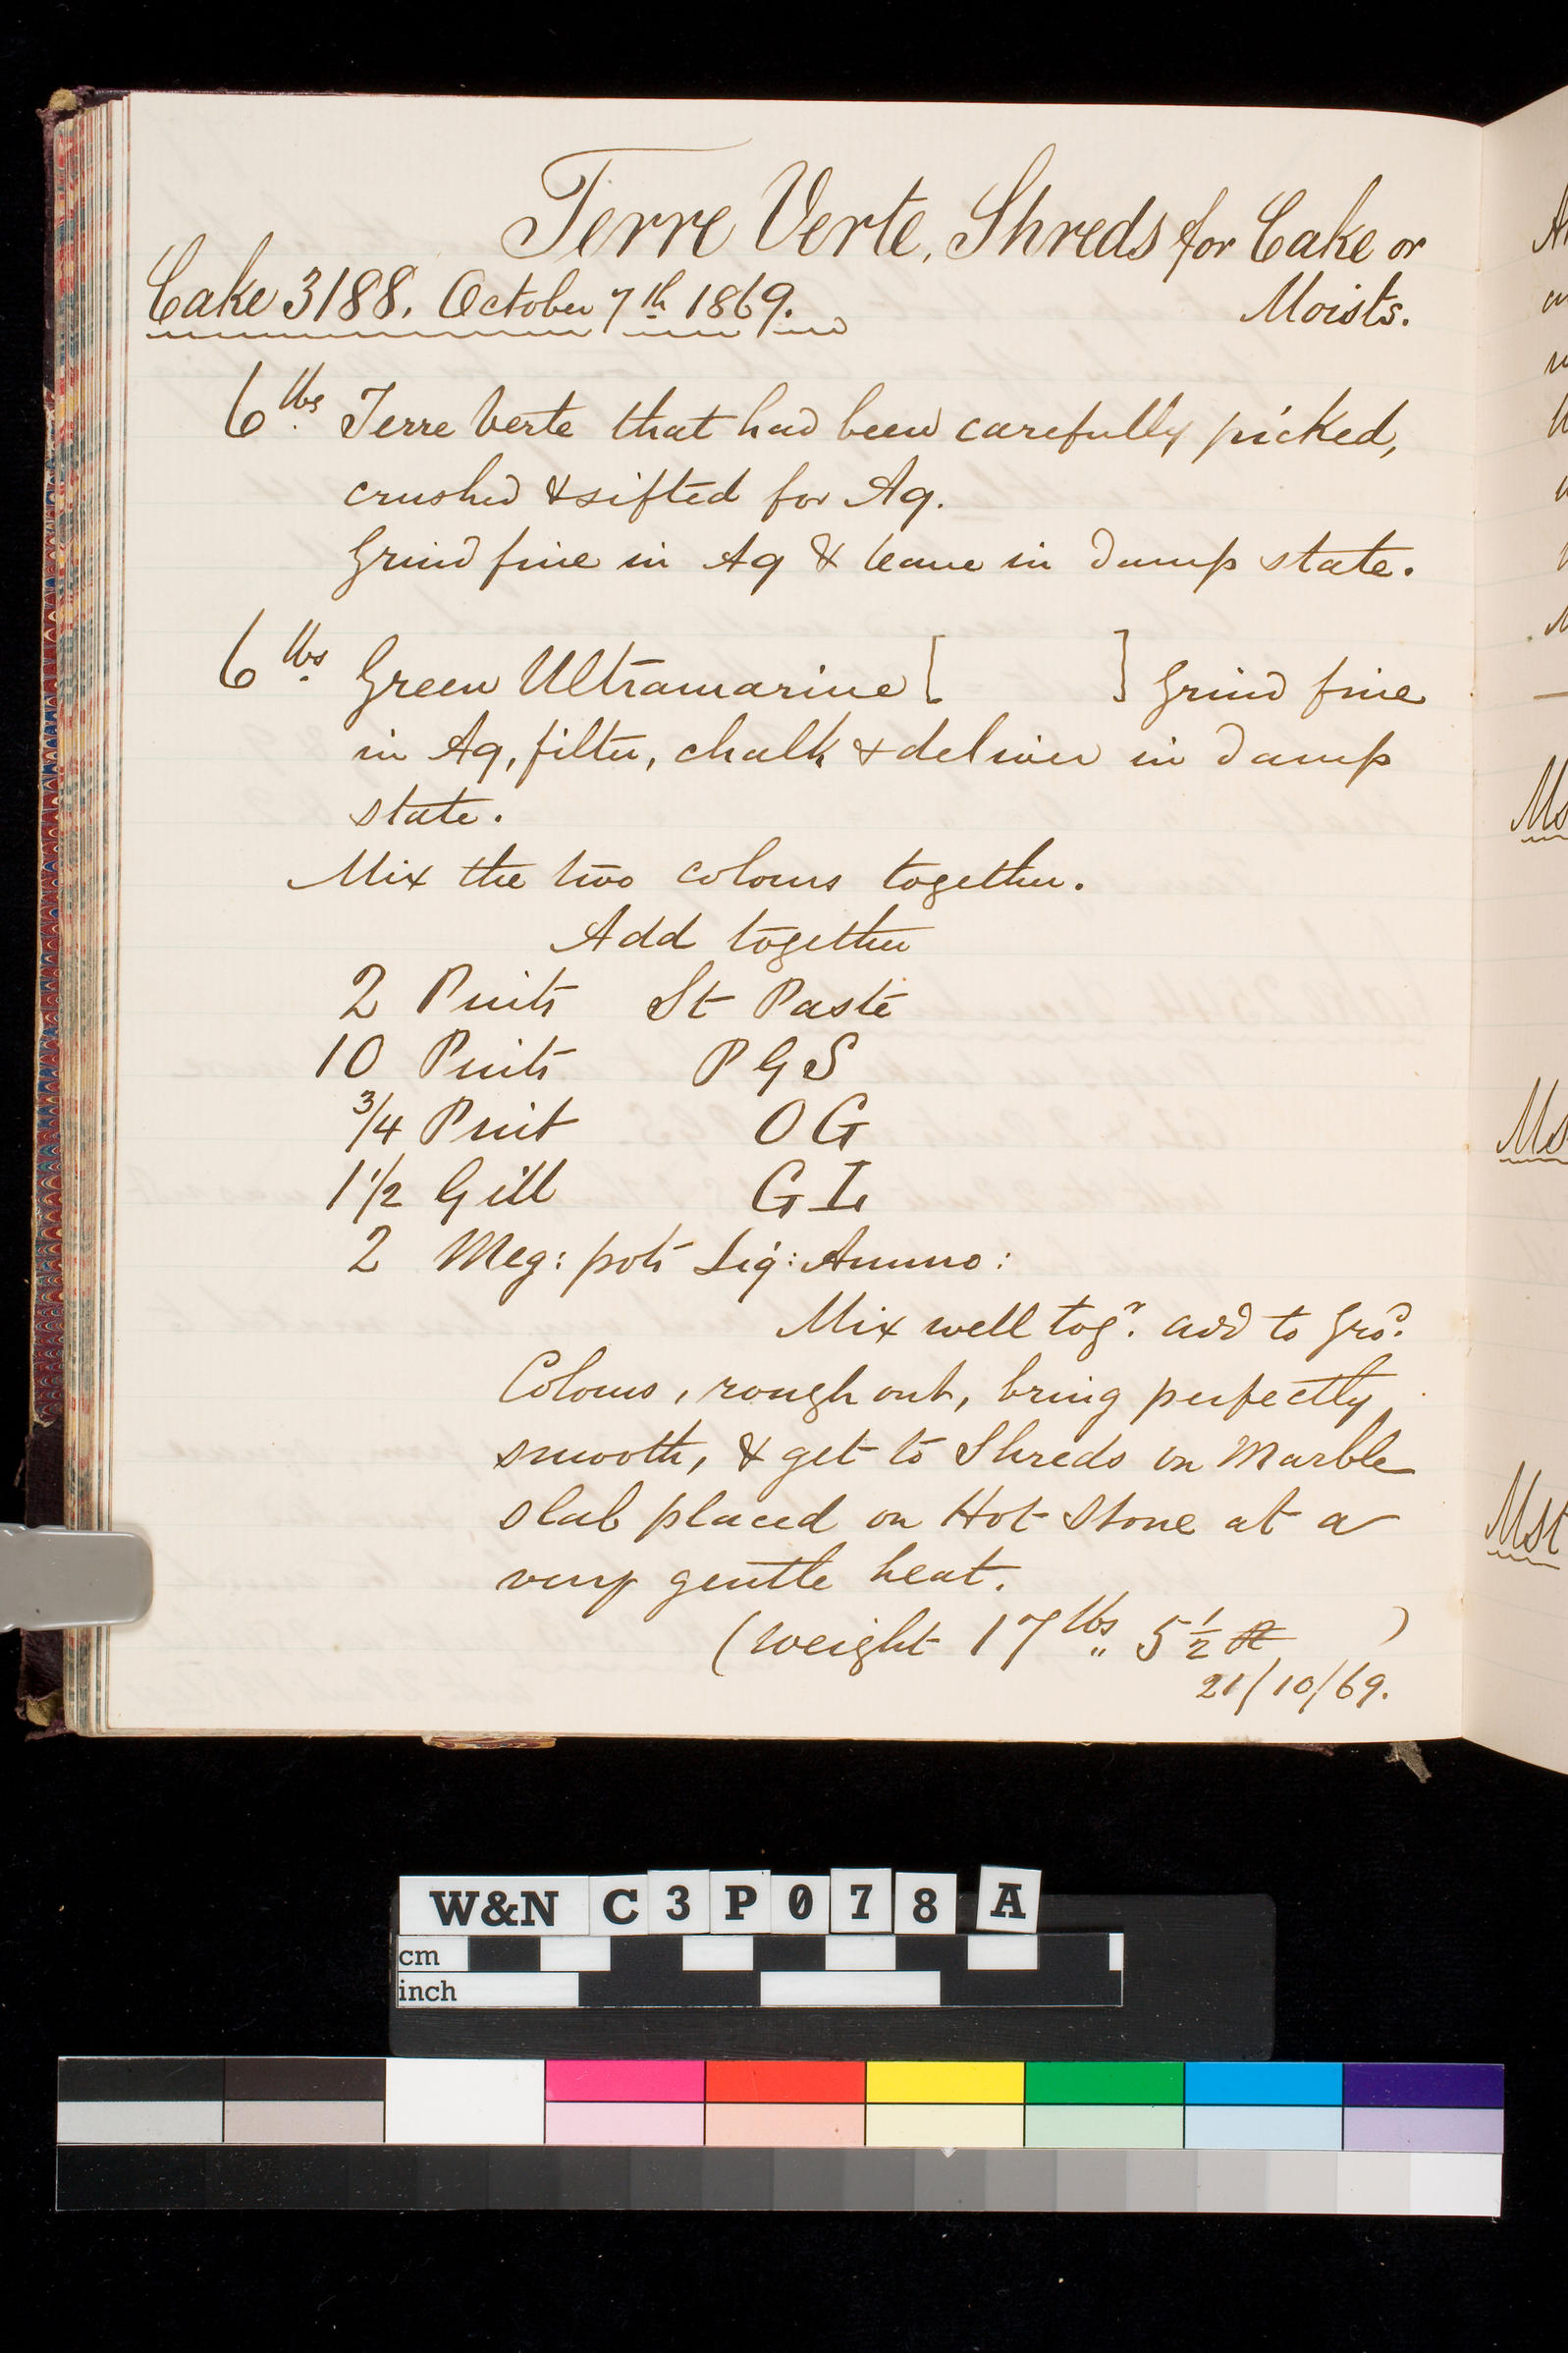 Terre Verte, Shreds for Cake or
Moists.
Cake 3188. October 7th 1869.
6 lbs Terre Verte that had been carefully picked,
crushed & sifted for Aq.
Grind fine in Aq & leave in damp state.
6 lbs Green Ultramarine [ ] Grind fine
in Aq, filter, chalk & deliver in damp
state.
Mix the two colours together.
Add together
2 Pints St Paste
10 Pints P G S
3/4 Pint O G
1 1/2 Gill G L
2 Meg: pots Liq: Ammo:
Mix well togr. add to Grod.
Colours, rough out, bring perfectly
smooth, & get to Shreds on Marble
slab placed on Hot Stone at a
very gentle heat.
(weight 17 lbs „ 5 1/2 )
21/10/69.
W&N C3P078 A
cm
inch